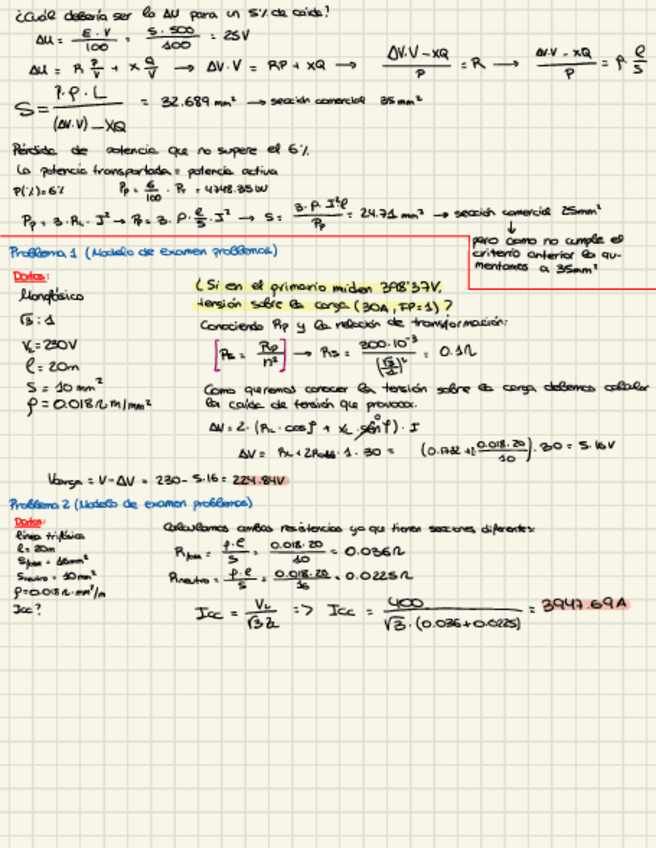 ¿Cuál debería ser la ΔU para un 5% de caída?
ΔU = E·V/100 = 5·500/100 = 25V
ΔU = R P/V + X Q/V → ΔV·V = RP + XQ → (ΔV·V - XQ)/P = R → (ΔV·V - XQ)/P = ρ·l/S
S = P·ρ·L/((ΔV·V) - XQ) = 32.689 mm² → sección comercial 35mm²
Pérdida de potencia que no supere el 6%
La potencia transportada = potencia activa
P(%)=6% Pp = 6/100 · Pr = 4748.35W
Pp = 3·RL·I² → Pp = 3·ρ·l/S·I² → S = 3·ρ·I²l/Pp = 24.71 mm² → sección comercial 25mm²
↓
pero como no cumple el
criterio anterior la au-
mentamos a 35mm²
Problema 1 (Modelo de examen problemas)
Datos:
Monofásico
√3 : 1
VL = 230V
l = 20m
S = 10 mm²
ρ = 0.018 Ω m/mm²
¿Si en el primario miden 398'37V,
tensión sobre la carga (30A, FP=1)?
Conociendo Rp y la relación de transformación:
[Rs = Rp/n²] → Rs = 300·10⁻³/(√3/1)² = 0.1Ω
Como queremos conocer la tensión sobre la carga debemos calcular
la caída de tensión que provoca.
ΔV = 2·(RL·cosφ + XL·senφ)·I
0
ΔV = ·1·30 = 0.018·20/10)·30 = 5.16V
Vcarga = V-ΔV = 230 - 5.16 = 224.84V
Problema 2 (Modelo de examen problemas)
Datos:
línea trifásica
l = 20m
Sfase = 16mm²
Sneutro = 10mm²
ρ=0.018 Ω·mm²/m
Icc?
Calculamos ambas resistencias ya que tienen secciones diferentes:
Rfase = ρ·l/S = 0.018·20/10 = 0.036Ω
Rneutro = ρ·l/S = 0.018·20/16 = 0.0225Ω
Icc = VL/√3Z => Icc = 400/√3·(0.036+0.0225) = 3947.69A